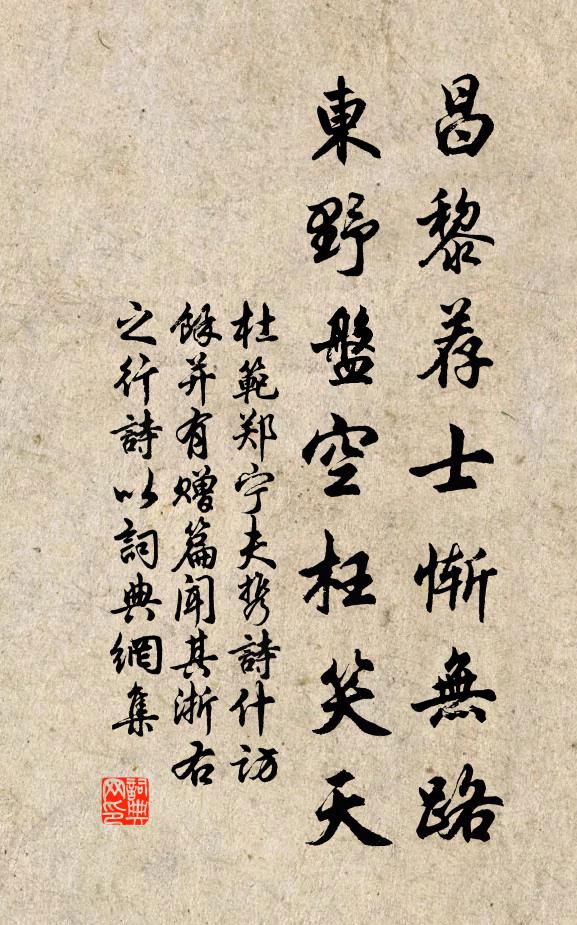 昌黎荐士惭無路
東野盤空枉笑天
杜範郑宁夫携詩什访
馀并有赠篇闻其浙右
之行詩以詞典網集
詞典网印